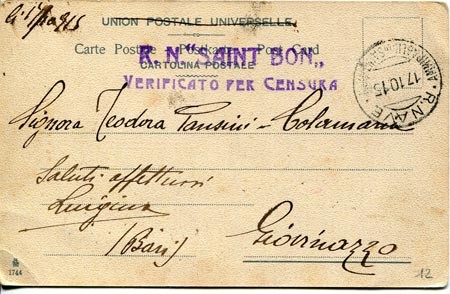 li 17/10 915
UNION POSTALE UNIVERSELLE.
Carte Postale Postkarte Post Card
CARTOLINA POSTALE
R. N. "SAINT BON„
VERIFICATO PER CENSURA
R. NAVE
17.10.15
Signora Teodora Pansini - Colamaria
Saluti affettuosi
Luigino
(Bari)
Giovinazzo
1744
12